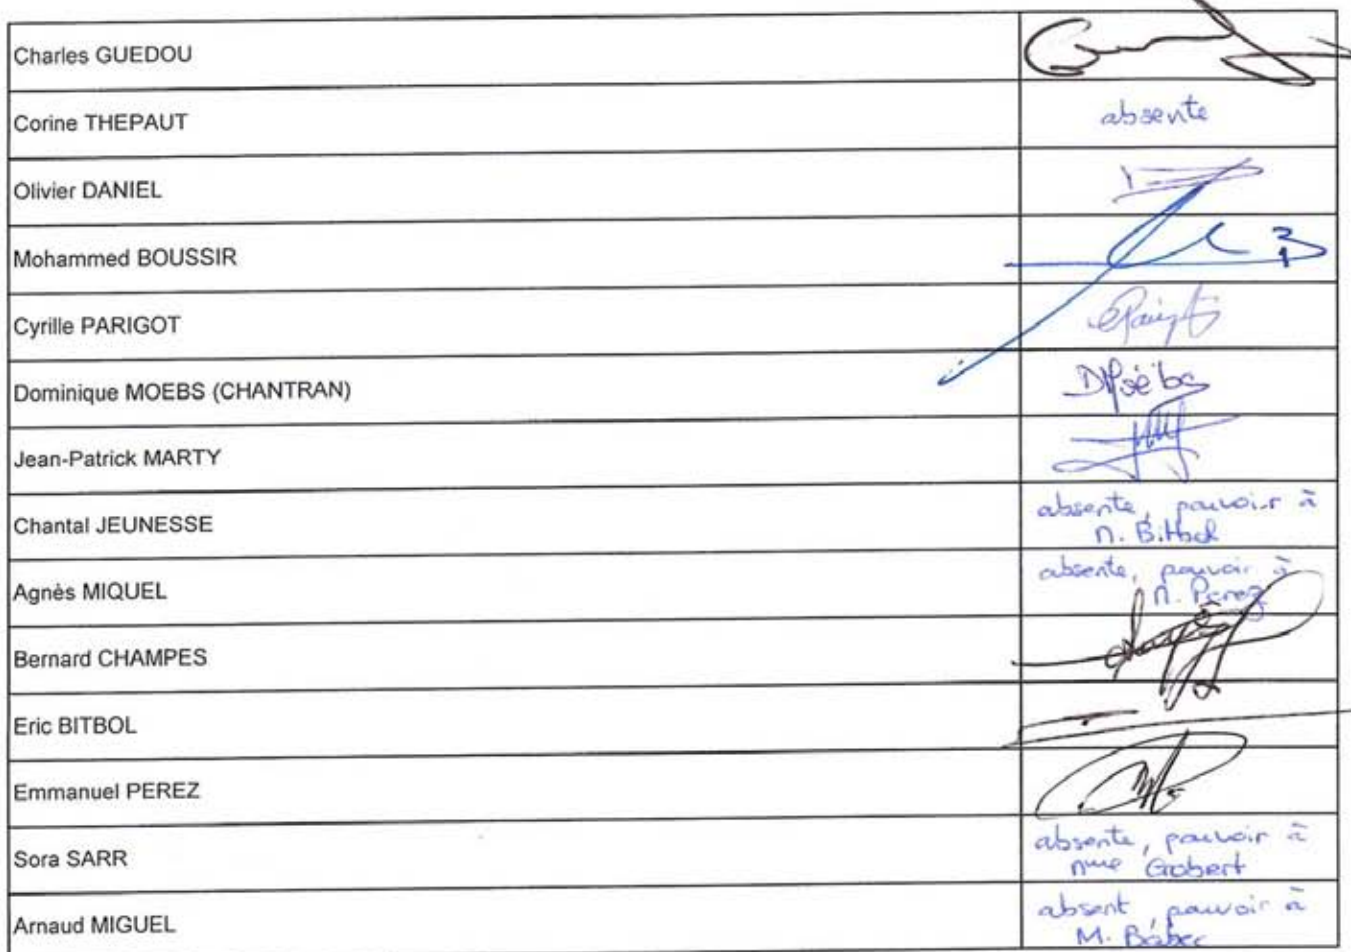 Charles GUEDOU
Corine THEPAUT
absente
Olivier DANIEL
Mohammed BOUSSIR
Cyrille PARIGOT
Dominique MOEBS (CHANTRAN)
Jean-Patrick MARTY
Chantal JEUNESSE
absente, pouvoir à
M. Bitbol
Agnès MIQUEL
absente, pouvoir à
M. Perez
Bernard CHAMPES
Eric BITBOL
Emmanuel PEREZ
Sora SARR
absente, pouvoir à
Mme Grobert
Arnaud MIGUEL
absent, pouvoir à
M.